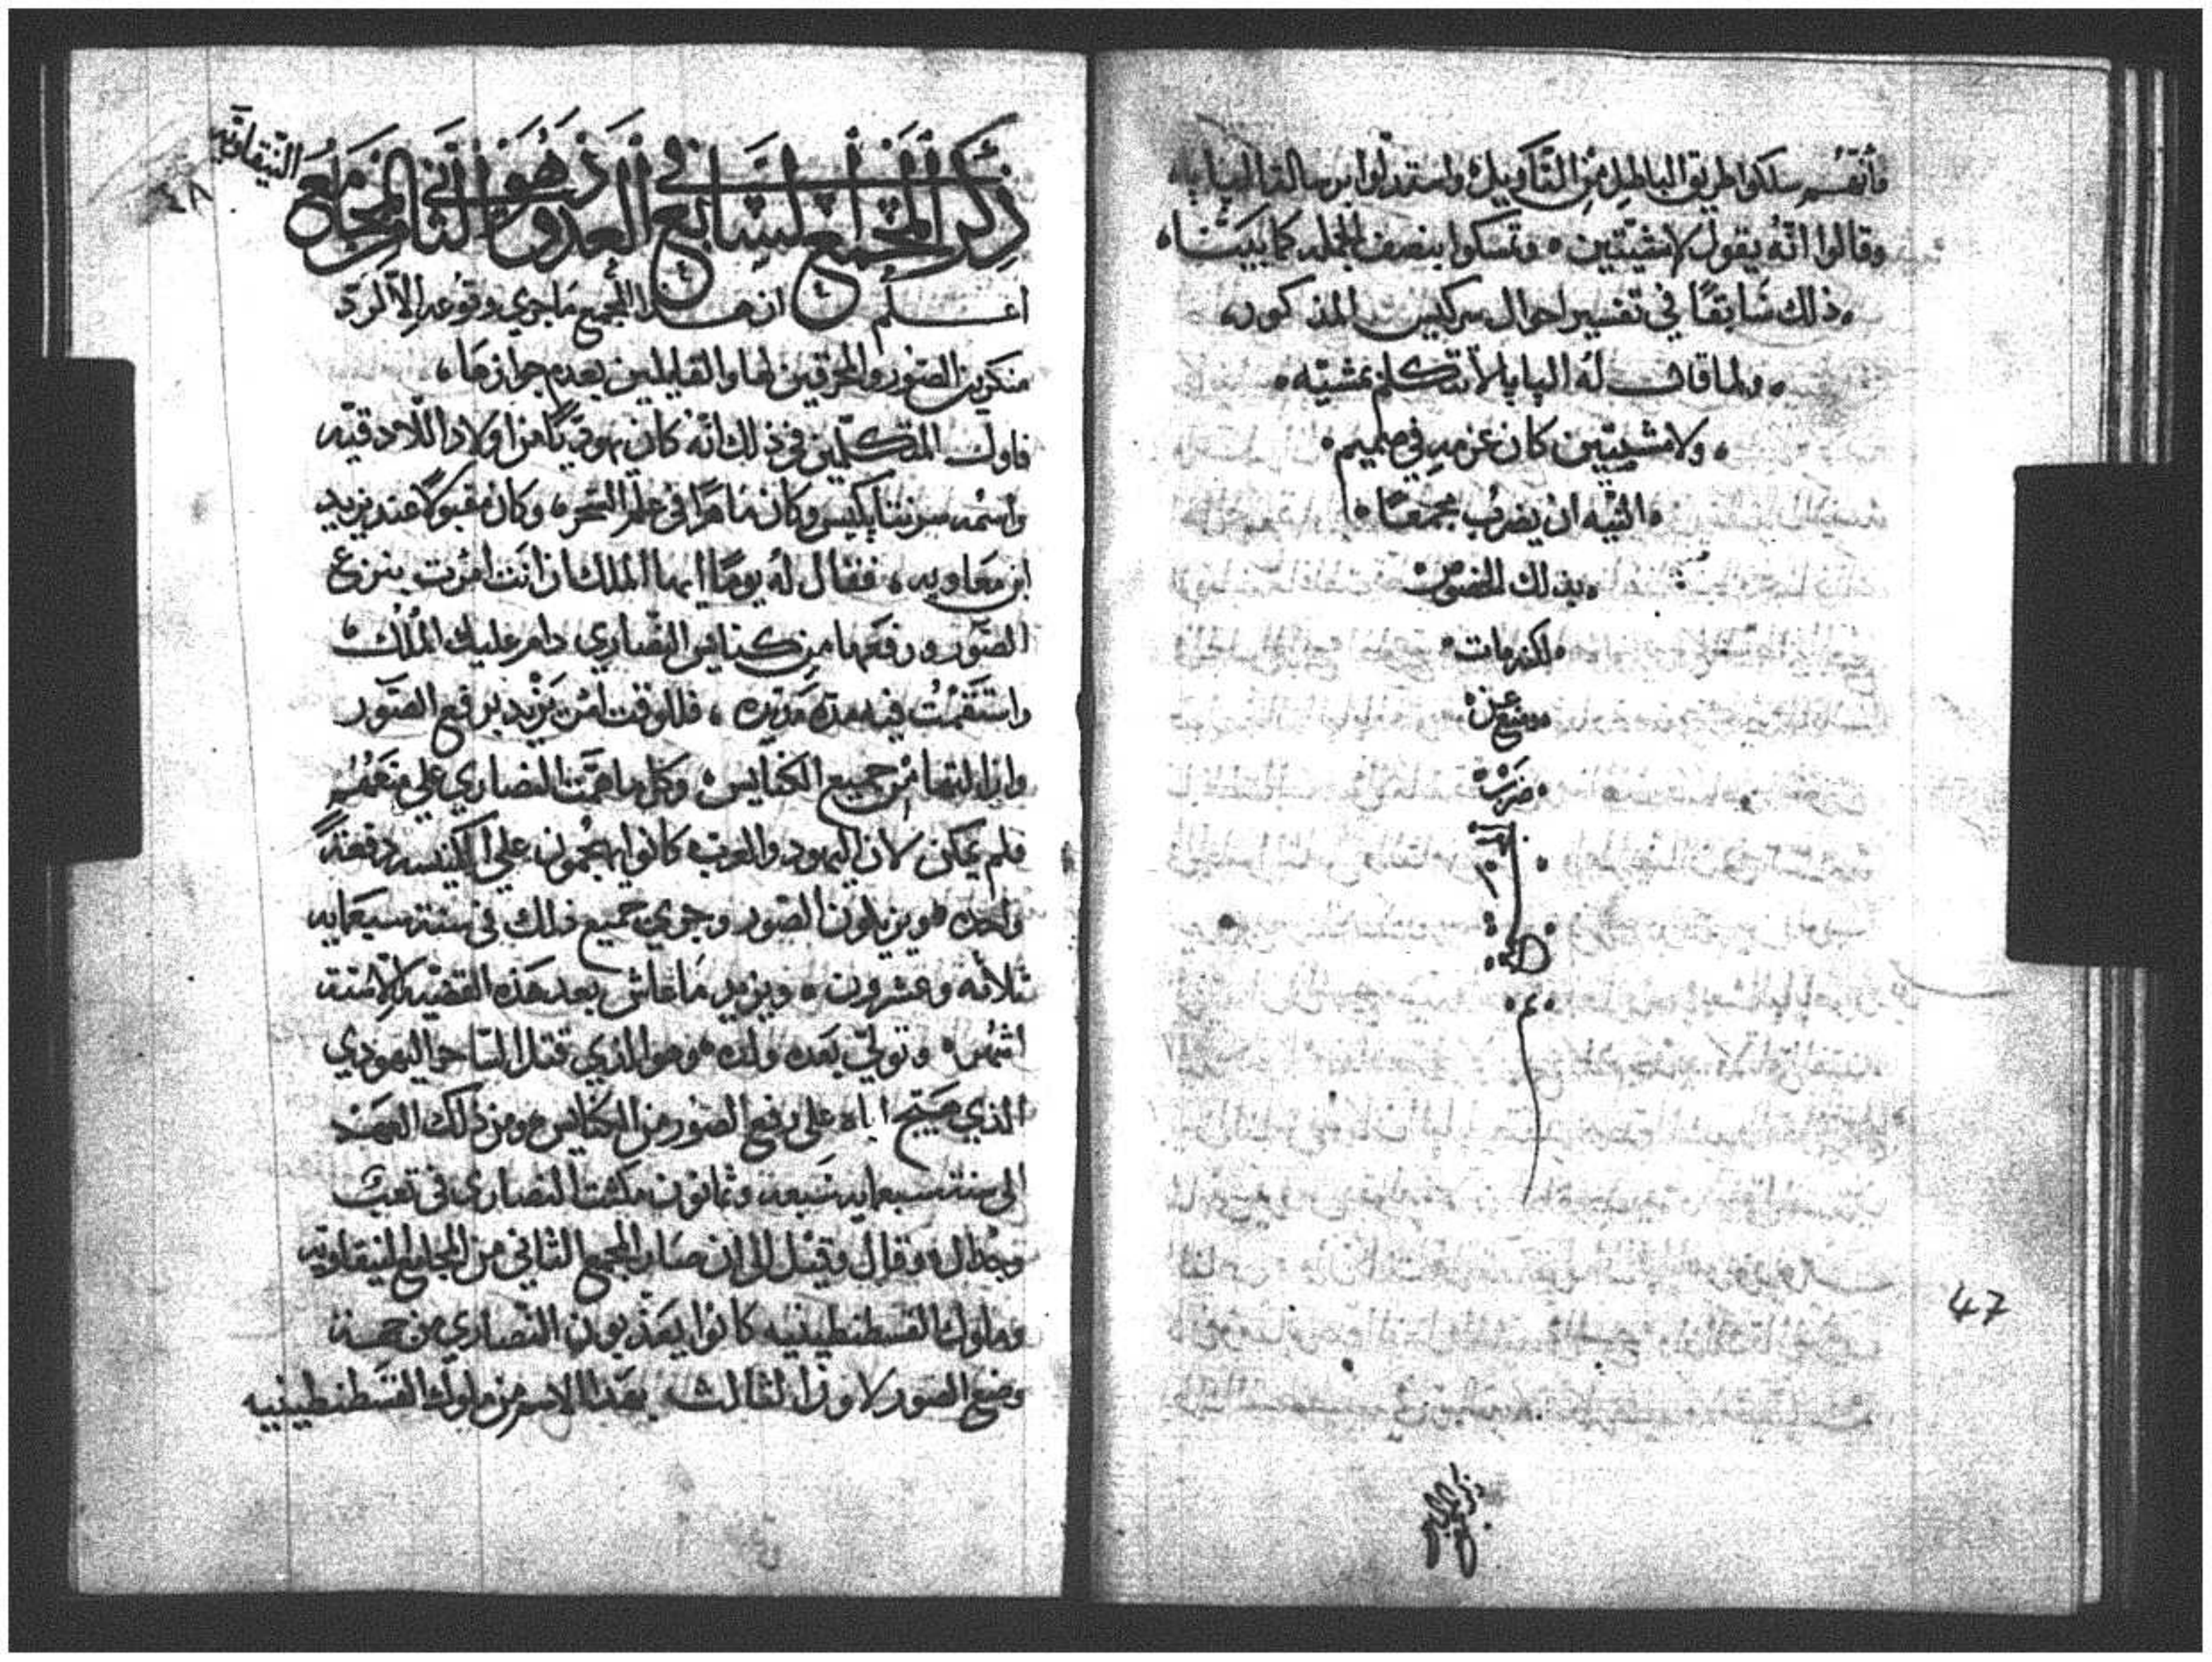 فأنفسهم سلكوا طريق الباطل من التأويل واستدلوا برسالة البابا
وقالوا انّه يقول لا مشيّتين وتمسكوا بنصف الجمله كما بيّنّا
ذلك سَابقًا في تفسير احوال سركيس المذكور
ولما قال له البابا لا نتكلم بمشيّه
ولا مشيتين كان عزمه في صميم
النيّه ان يضرب مجمعًا
بذلك الخصوص
لكنه مات
ومنع عن
47
ذكر المجمع السابع في العدد وهو الثاني من المجامع النيقاويّه
٤٨
اعلم ان هذا المجمع ما جري وقوعه الّا لردّ
منكرين الصور والمحرقين لها والقايلين بعدم جوازها
فاول المتكلّمين في ذلك انّه كان يهوديّا من اولاد اللادقيّه
واسمه وكان ماهرًا في علم السحر وكان مقبولًا عند يزيد
ابن معاويه فقال له يومًا ايها الملك ان انت امرت بنزع
الصّور ورفعها من كنايس النصاري دام عليك المُلك
واستقمت فيه مدة مديده فللوقت امر يزيد برفع الصّور
وازالتها من جميع الكنايس وكل ما همّت النصاري علي منعهم
فلم يمكن لان اليهود والعرب كانوا يهجمون علي الكنيسه دفعةً
واحده ويزيلون الصور وجري جميع ذلك في سنة سبعمايه
ثلاثه وعشرون ويزيد ما عاش بعد هذه القضيه الّا ستة
اشهر وتولّي بعده ولده وهو الذي قتل السّاحر اليهودي
الذي هيّج اباه علي رفع الصور من الكنايس ومن ذلك العهد
الي سنة سبعمايه سبعه وثمانون مكثت النصاري في تعب
وجدال وقال وقيل الي ان صار المجمع الثاني من المجامع النيقاويّه
وملوك القسطنطينيه كانوا يعذّبون النّصاري من جهة
وضع الصور لاون الثالث بهذا الاسم من ملوك القسطنطينيه